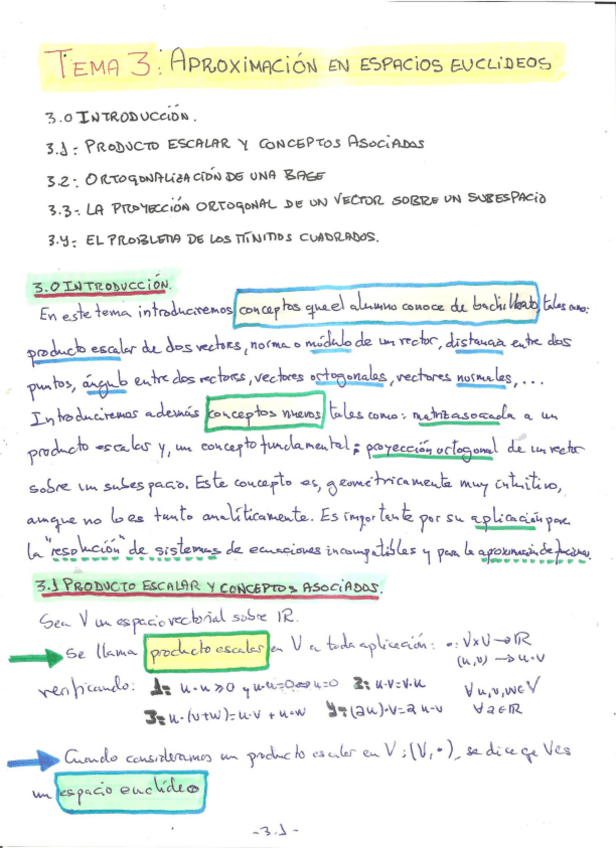 TEMA 3: APROXIMACIÓN EN ESPACIOS EUCLIDEOS
3.0 INTRODUCCIÓN.
3.1: PRODUCTO ESCALAR Y CONCEPTOS ASOCIADOS
3.2: ORTOGONALIZACIÓN DE UNA BASE
3.3: LA PROYECCIÓN ORTOGONAL DE UN VECTOR SOBRE UN SUBESPACIO
3.4: EL PROBLEMA DE LOS MÍNIMOS CUADRADOS.
3.0 INTRODUCCIÓN.
En este tema introduciremos conceptos que el alumno conoce de bachillerato, tales como:
producto escalar de dos vectores, norma o módulo de un vector, distancia entre dos
puntos, ángulo entre dos vectores, vectores ortogonales, vectores normales, ...
Introduciremos además conceptos nuevos tales como: matriz asociada a un
producto escalar y, un concepto fundamental: proyección ortogonal de un vector
sobre un subespacio. Este concepto es, geométricamente muy intuitivo,
aunque no lo es tanto analíticamente. Es importante por su aplicación para
la "resolución" de sistemas de ecuaciones incompatibles y para la aproximación de funciones.
3.1 PRODUCTO ESCALAR Y CONCEPTOS ASOCIADOS.
Sea V un espacio vectorial sobre IR.
Se llama producto escalar en V a toda aplicación: •: V×V → IR
(u,v) → u·v
verificando: 1: u·u ≥ 0 y u·u=0 ⇔ u=0 2: u·v=v·u ∀u,v,w∈V
3: u·(v+w)=u·v + u·w 4: (λu)·v=λ u·v ∀λ∈IR
Cuando consideramos un producto escalar en V; (V,•), se dice qe V es
un espacio euclídeo
-3.1-